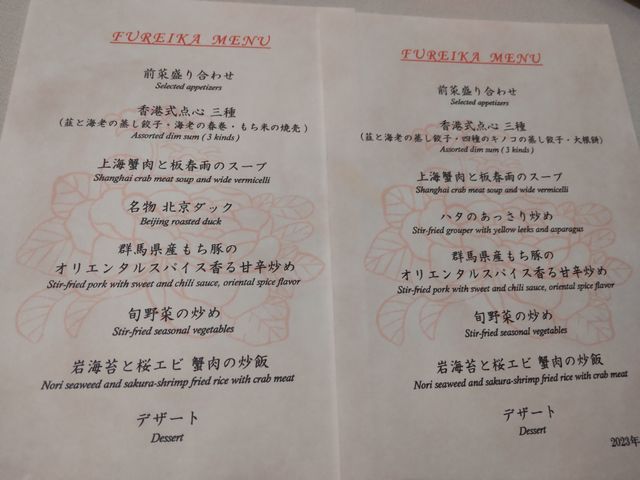 FUREIKA MENU
前菜盛り合わせ
Selected appetizers
香港式点心 三種
(韮と海老の蒸し餃子・海老の春巻・もち米の焼売)
Assorted dim sum ( 3 kinds )
上海蟹肉と板春雨のスープ
Shanghai crab meat soup and wide vermicelli
名物 北京ダック
Beijing roasted duck
群馬県産もち豚の
オリエンタルスパイス香る甘辛炒め
Stir-fried pork with sweet and chili sauce, oriental spice flavor
旬野菜の炒め
Stir-fried seasonal vegetables
岩海苔と桜エビ 蟹肉の炒飯
Nori seaweed and sakura-shrimp fried rice with crab meat
デザート
Dessert
FUREIKA MENU
前菜盛り合わせ
Selected appetizers
香港式点心 三種
(韮と海老の蒸し餃子・四種のキノコの蒸し餃子・大根餅)
Assorted dim sum ( 3 kinds )
上海蟹肉と板春雨のスープ
Shanghai crab meat soup and wide vermicelli
ハタのあっさり炒め
Stir-fried grouper with yellow leeks and asparagus
群馬県産もち豚の
オリエンタルスパイス香る甘辛炒め
Stir-fried pork with sweet and chili sauce, oriental spice flavor
旬野菜の炒め
Stir-fried seasonal vegetables
岩海苔と桜エビ 蟹肉の炒飯
Nori seaweed and sakura-shrimp fried rice with crab meat
デザート
Dessert
2023年